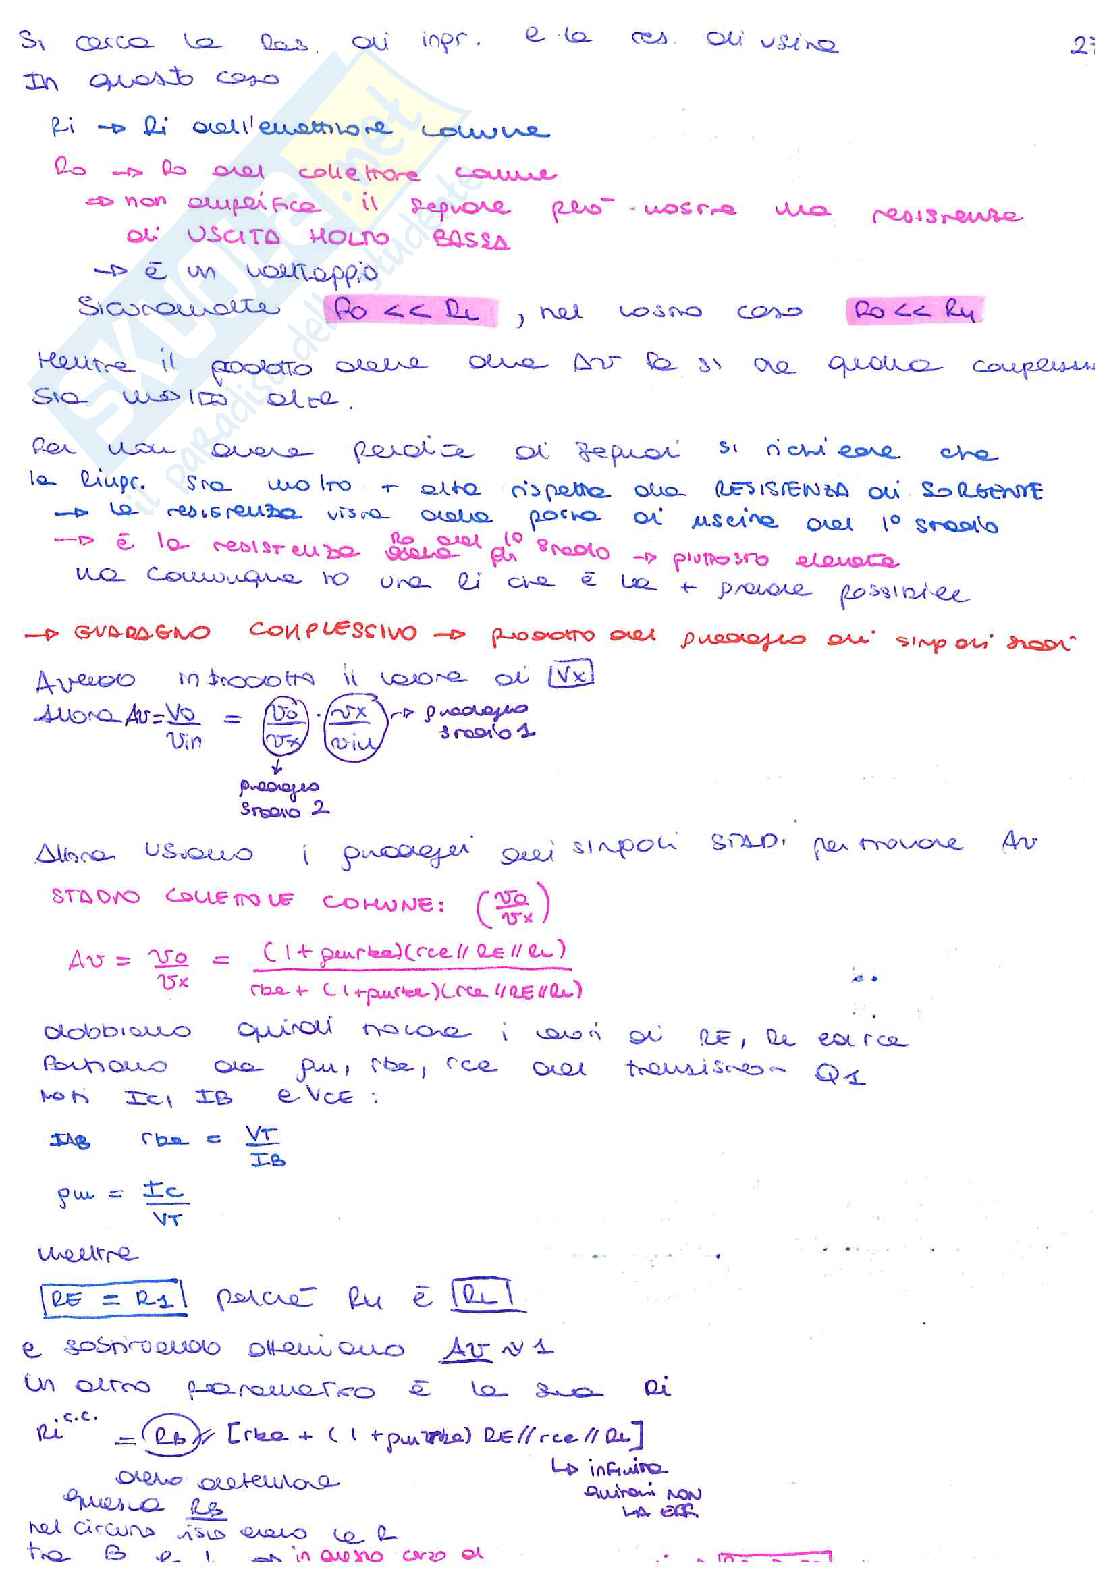 Si cerca la Res. di ingr. e la res. di uscita 27
In questo caso
Ri → Ri dell'emettitore comune
Ro → Ro del collettore comune
→ non amplifica il segnale però mostra una resistenza
di USCITA MOLTO BASSA
→ è un vantaggio
Sicuramente Ro << RL , nel nostro caso Ro << R4
Mentre il prodotto delle due AV fa si che quella complessiva
Sia molto alta.
Per non avere perdite di segnali si richiede che
la Ringr. sia molto + alta rispetto alla RESISTENZA di SORGENTE
→ la resistenza vista dalla porta di uscita del 1° stadio
→ è la resistenza Ro del 1° stadio → piuttosto elevata
ma comunque ho una Ri che è la + grande possibile
→ GUADAGNO COMPLESSIVO → prodotto del guadagno dei singoli stadi
Avendo introdotto il valore di Vx
Allora AV = Vo/Vin = (vo/vx) · (vx/vin) → guadagno
stadio 1
guadagno
stadio 2
Allora usiamo i guadagni dei singoli STADI per trovare AV
STADIO COLLETTORE COMUNE: (vo/vx)
AV = vo/vx = (1+gmrbe)(rce//RE//RL) / rbe+(1+gmrbe)(rce//RE//RL)
dobbiamo quindi trovare i valori di RE, RL ed rce
Partiamo da gm, rbe, rce del transistor Q1
noti IC, IB e VCE :
rbe = VT/IB
gm = IC/VT
mentre
RE = R1 perché R4 è RL
e sostituendo otteniamo AV ≈ 1
un altro parametro è la sua Ri
Ri c.c. = RB // [rbe + (1+gmrbe) RE//rce//RL]
↳ infinita
quindi NON
HA EFF.
devo determinare
questa RB
nel circuito visto avevo la R
tra B e